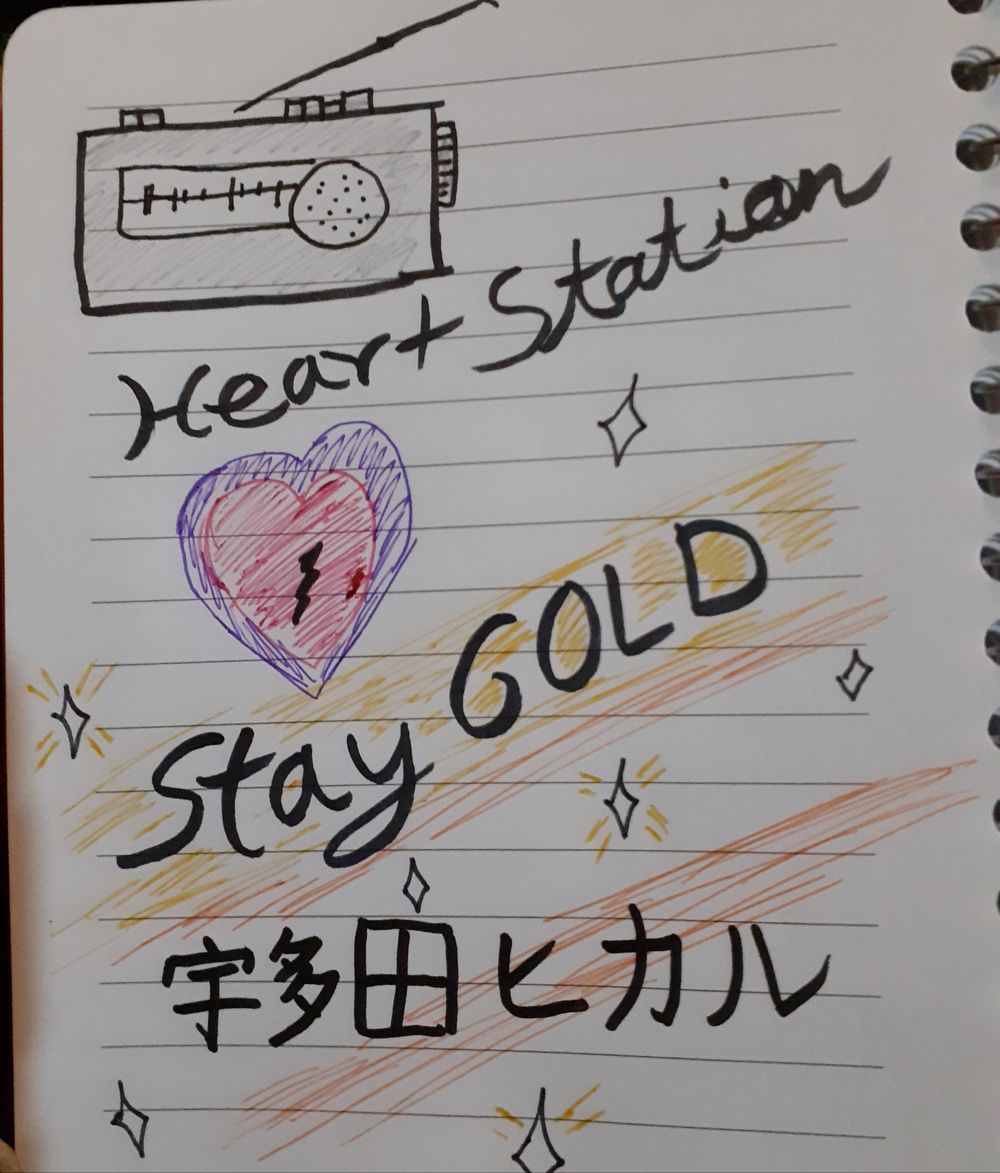 Heart Station
Stay GOLD
宇多田ヒカル